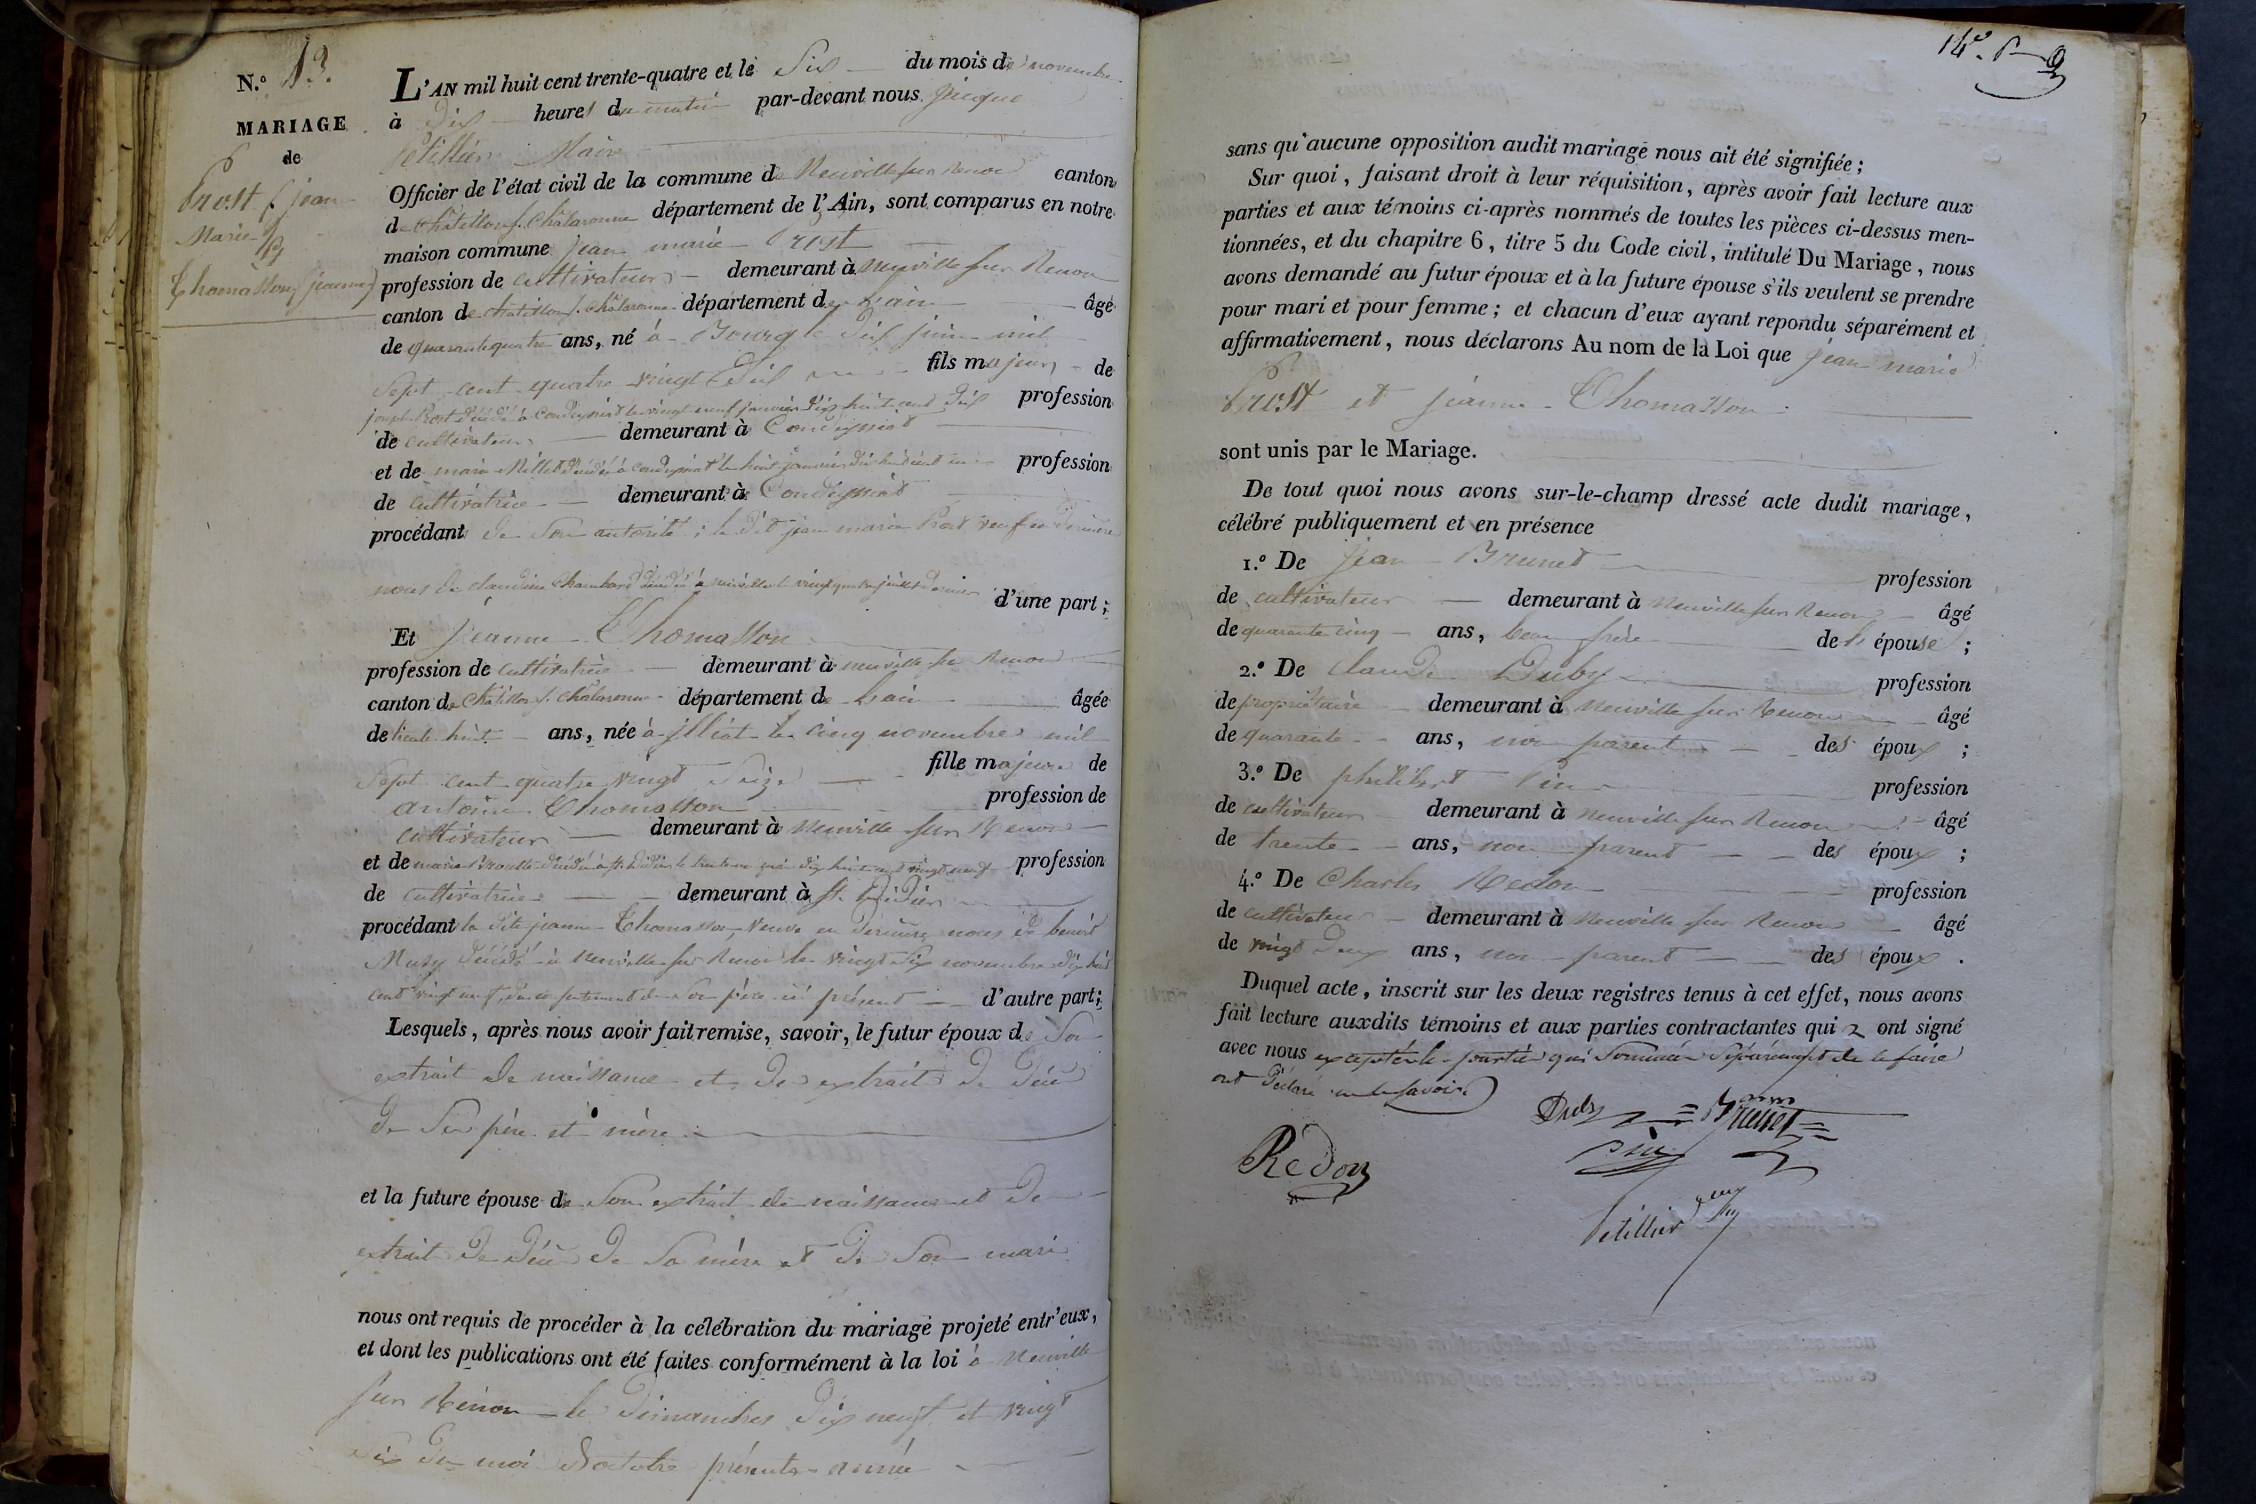 N.º 13.
MARIAGE
de
Prost / jean
Marie /
et
Thomasson / jeanne /
L'AN mil huit cent trente-quatre et le Six du mois de novembre
à Dix heures du matin par-devant nous Jacque
Petillier Maire
Officier de l'état civil de la commune de Neuville sur Renon canton
de Châtillon s. Châlaronne département de l'Ain, sont comparus en notre
maison commune jean marie Prost
profession de cultivateur demeurant à neuville sur Renon
canton de Châtillon s. Châlaronne département de Lain âgé
de quarante quatre ans, né à Bourg le Dix juin mil
Sept cent quatre vingt Dix fils majeur de
joseph Prost Décédé à Condeyssiat le vingt neuf janvier Dix huit cent Dix profession
de cultivateur demeurant à Condeyssiat
et de marie Millet Décédé à Condeyssiat le huit janvier Dix huit cent profession
de cultivatrice demeurant à Condeyssiat
procédant de Son autorité ; le Dit jean marie Prost veuf en Dernière
noces de claudine Chambard Décédé à neuville le vingt quatre juillet Dernier d'une part ;
Et jeanne Thomasson
profession de cultivatrice demeurant à neuville sur Renon
canton de Châtillon s. Châlaronne département de Lain âgée
de trente huit ans, née à illiat le cinq novembre mil
Sept cent quatre vingt Seize fille majeure de
antoine Thomasson profession de
cultivateur demeurant à Neuville sur Renon
et de marie Décédé à St. Didier le Dix huit cent vingt neuf profession
de cultivatrice demeurant à St. Didier
procédant la Dite jeanne Thomasson, Veuve en Dernière noces de benoit
Musy Décédé à neuville sur Renon le vingt Six novembre Dix huit
cent vingt neuf, Du consentement de Son père ici présent d'autre part ;
Lesquels, après nous avoir fait remise, savoir, le futur époux de Son
extrait de naissance et De extrait De Décè
De Ses père et mère
et la future épouse de Son extrait de naissance et De
extrait De Décè De Sa mère et De Son mari
nous ont requis de procéder à la célébration du mariage projeté entr'eux,
et dont les publications ont été faites conformément à la loi à Neuville
sur Renon le Dimanches Dix neuf et vingt
Six Du moi D'octobre présente année
14e. P
sans qu'aucune opposition audit mariage nous ait été signifiée ;
Sur quoi, faisant droit à leur réquisition, après avoir fait lecture aux
parties et aux témoins ci-après nommés de toutes les pièces ci-dessus men-
tionnées, et du chapitre 6, titre 5 du Code civil, intitulé Du Mariage, nous
avons demandé au futur époux et à la future épouse s'ils veulent se prendre
pour mari et pour femme ; et chacun d'eux ayant repondu séparément et
affirmativement, nous déclarons Au nom de la Loi que jean marie
Prost et jeanne Thomasson
sont unis par le Mariage.
De tout quoi nous avons sur-le-champ dressé acte dudit mariage,
célébré publiquement et en présence
1.º De jean Brunet profession
de cultivateur demeurant à Neuville sur Renon âgé
de quarante cinq ans, beau frère de l'épouse ;
2.º De claude Duby profession
de propriétaire demeurant à Neuville sur Renon âgé
de quarante ans, non parent des époux ;
3.º De philibert Pin profession
de cultivateur demeurant à Neuville sur Renon âgé
de trente ans, non parent des époux ;
4.º De Charles Redon profession
de cultivateur demeurant à Neuville sur Renon âgé
de vingt Deux ans, non parent des époux .
Duquel acte, inscrit sur les deux registres tenus à cet effet, nous avons
fait lecture auxdits témoins et aux parties contractantes qui ont signé
avec nous excepté le partie qui Sommée Séparément de le faire
ont Déclaré ne le Savoir.
Duby Brunet
Pin
Redon
Petillier